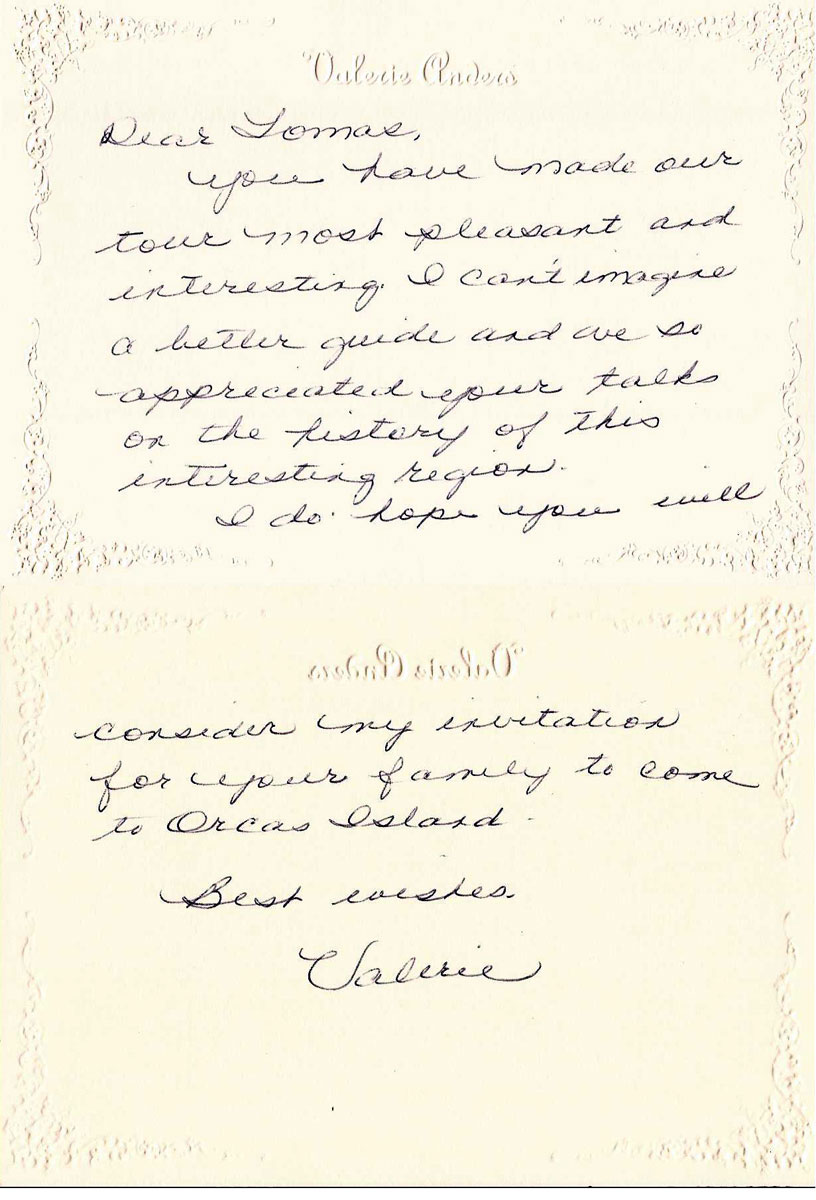 Valerie Anders
Dear Tomas,
you have made our
tour most pleasant and
interesting. I can't imagine
a better guide and we so
appreciated your talks
on the history of this
interesting region.
I do hope you will
Valerie Anders
consider my invitation
for your family to come
to Orcas Island.
Best wishes.
Valerie